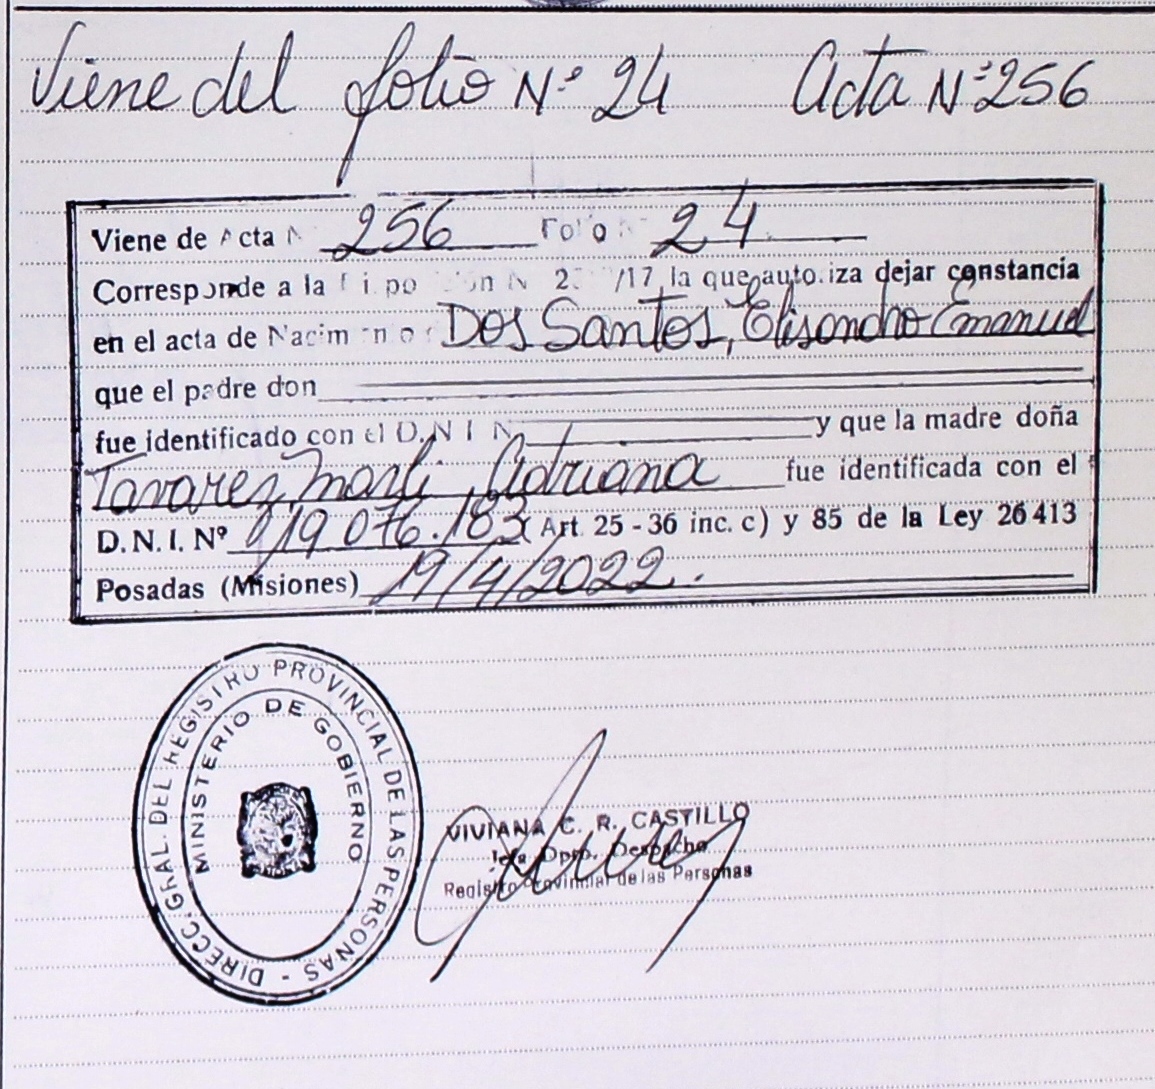 Viene del folio Nº 24 Acta Nº 256
Viene de Acta N 256 Folio N 24
Corresponde a la /17 la que autoriza dejar constancia
en el acta de Nacimiento Dos Santos, Emanuel
que el padre don
fue identificado con el D.N I N y que la madre doña
Tavarez, Adriana fue identificada con el
D.N.I. Nº 19 076.183 Art. 25-36 inc. c) y 85 de la Ley 26413
Posadas (Misiones) 19/4/2022.
DIRECC. GRAL. DEL REGISTRO PROVINCIAL DE LAS PERSONAS -
MINISTERIO DE GOBIERNO
VIVIANA C. R. CASTILLO
Jefa Dpto. Despacho
Registro Provincial de las Personas